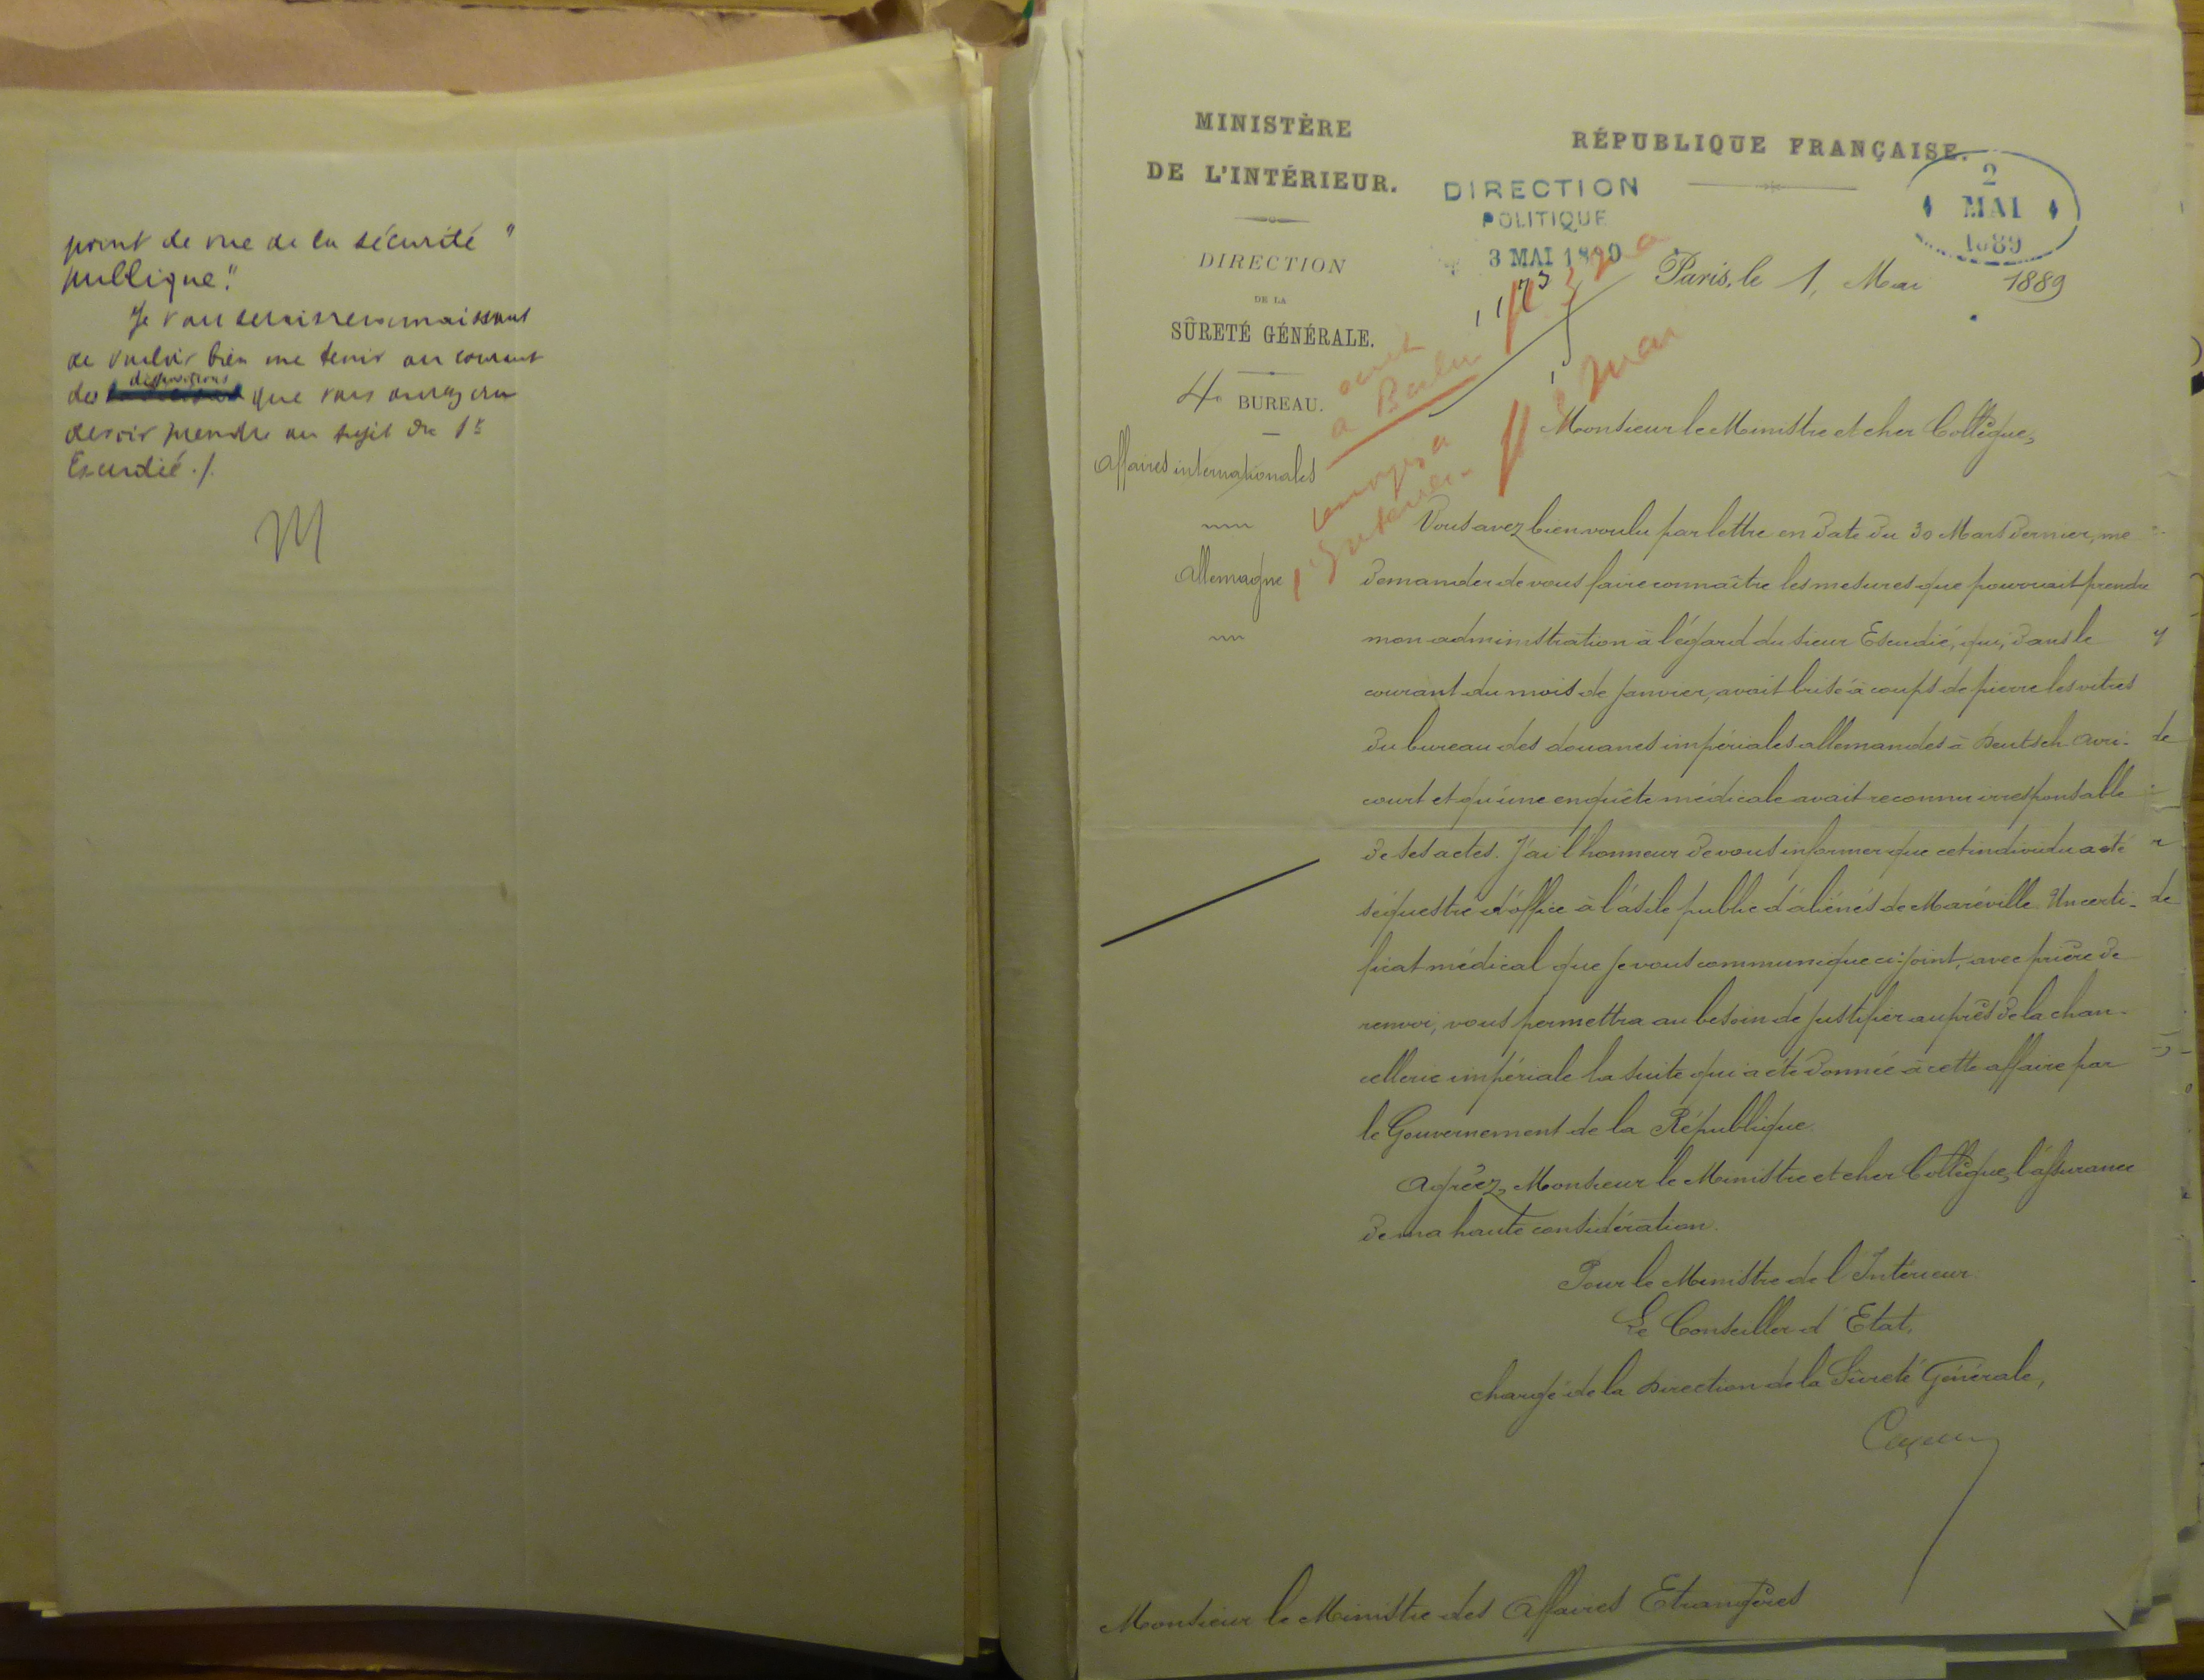 point de vue de la sécurité "
publique."
Je vous serais reconnaissant
de vouloir bien me tenir au courant
des dispositions que vous aurez cru
devoir prendre au sujet du Sr
Escudié ./.
M
MINISTÈRE
DE L'INTÉRIEUR.
DIRECTION
DE LA
SÛRETÉ GÉNÉRALE.
4e BUREAU.
Affaires internationales
Allemagne
RÉPUBLIQUE FRANÇAISE.
DIRECTION
POLITIQUE
3 MAI 1889
2
MAI
1889
écrit
à Berlin
le 3 mai
renvoyé à
l'Intérieur
Paris, le 1, Mai 1889
Monsieur le Ministre et cher Collègue,
Vous avez bien voulu par lettre en date du 30 Mars dernier, me
demander de vous faire connaître les mesures que pourrait prendre
mon administration à l'égard du sieur Escudié, qui, dans le
courant du mois de Janvier, avait brisé à coups de pierre les vitres
du bureau des douanes impériales allemandes à Deutsch-Avri-
court et qu'une enquête médicale avait reconnu irresponsable
de ses actes. J'ai l'honneur de vous informer que cet individu a été
séquestré d'office à l'asile public d'aliénés de Maréville. Un certi-
ficat médical que je vous communique ci-joint, avec prière de
renvoi, vous permettra au besoin de justifier auprès de la chan-
cellerie impériale la suite qui a été donnée à cette affaire par
le Gouvernement de la République.
Agréez, Monsieur le Ministre et cher Collègue, l'assurance
de ma haute considération.
Pour le Ministre de l'Intérieur
Le Conseiller d'Etat,
chargé de la Direction de la Sûreté Générale,
Monsieur le Ministre des Affaires Etrangères